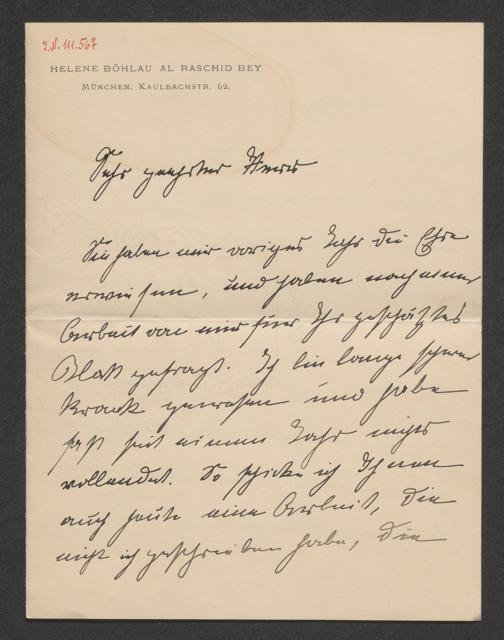 I.N. 111.567
HELENE BÖHLAU AL RASCHID BEY
MÜNCHEN, KAULBACHSTR. 62.
Sehr geehrter Herr
Sie haben mir voriges Jahr die Ehre
erwiesen, und haben nach einer
Arbeit von mir für Ihr geschätztes
Blatt gefragt. Ich bin lange schwer
krank gewesen und habe
fast seit einem Jahr nichts
vollendet. So schicke ich Ihnen
auch heute eine Arbeit, die
nicht ich geschrieben habe, die